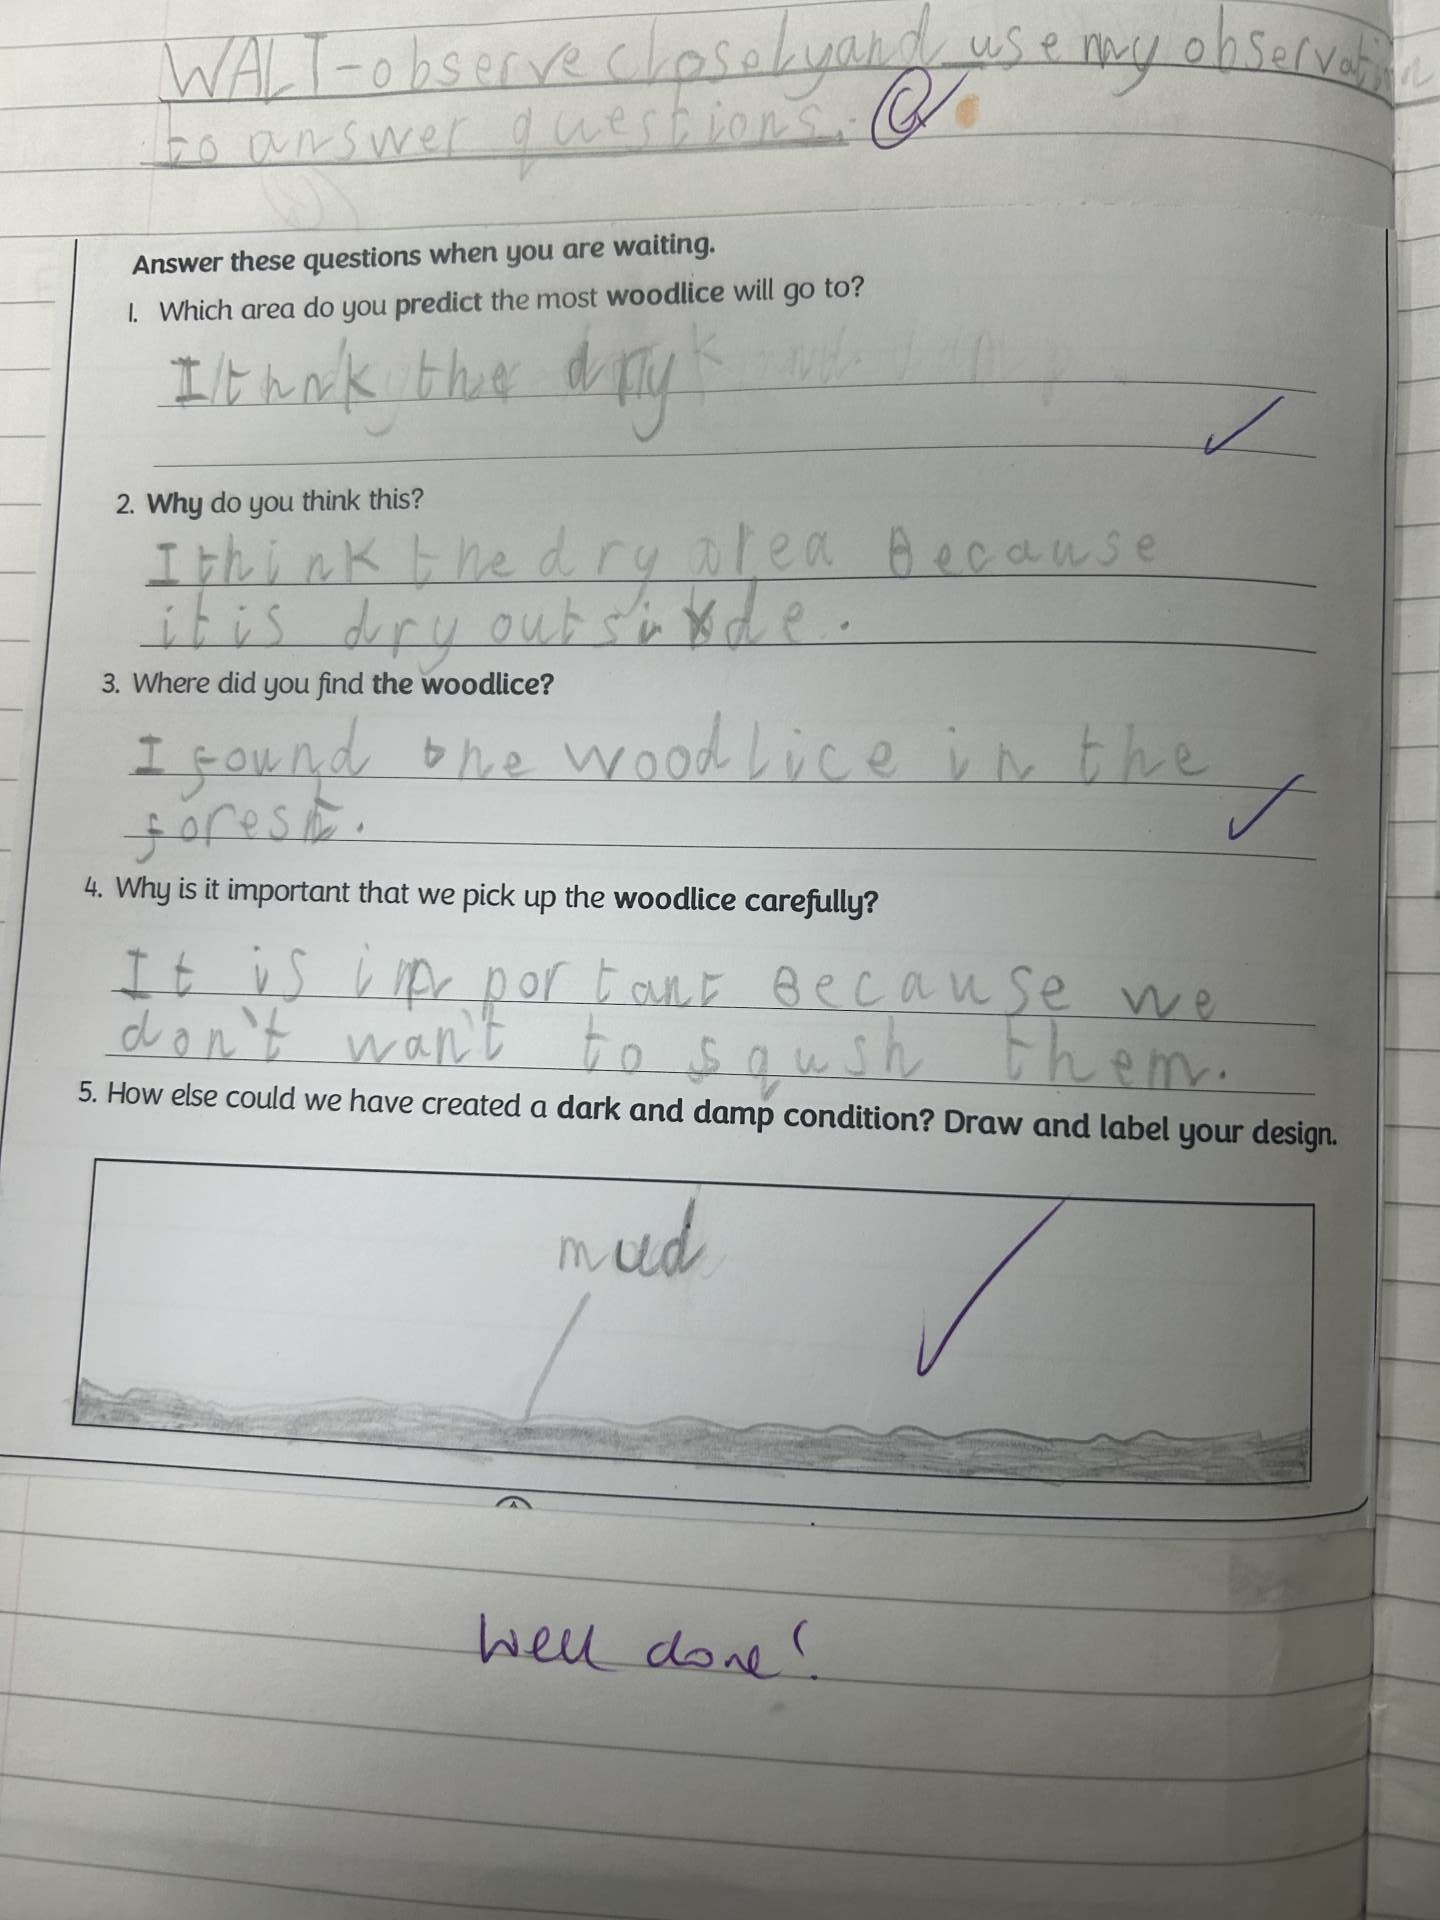 WALT-observe closely and use my observation
to answer questions.
Answer these questions when you are waiting.
1. Which area do you predict the most woodlice will go to?
I thnk the dry
2. Why do you think this?
I think the dry area Because
it is dry outside.
3. Where did you find the woodlice?
I found the woodlice in the
forest.
4. Why is it important that we pick up the woodlice carefully?
It is important Because we
don't wan't to sqush them.
5. How else could we have created a dark and damp condition? Draw and label your design.
mud
Well done!